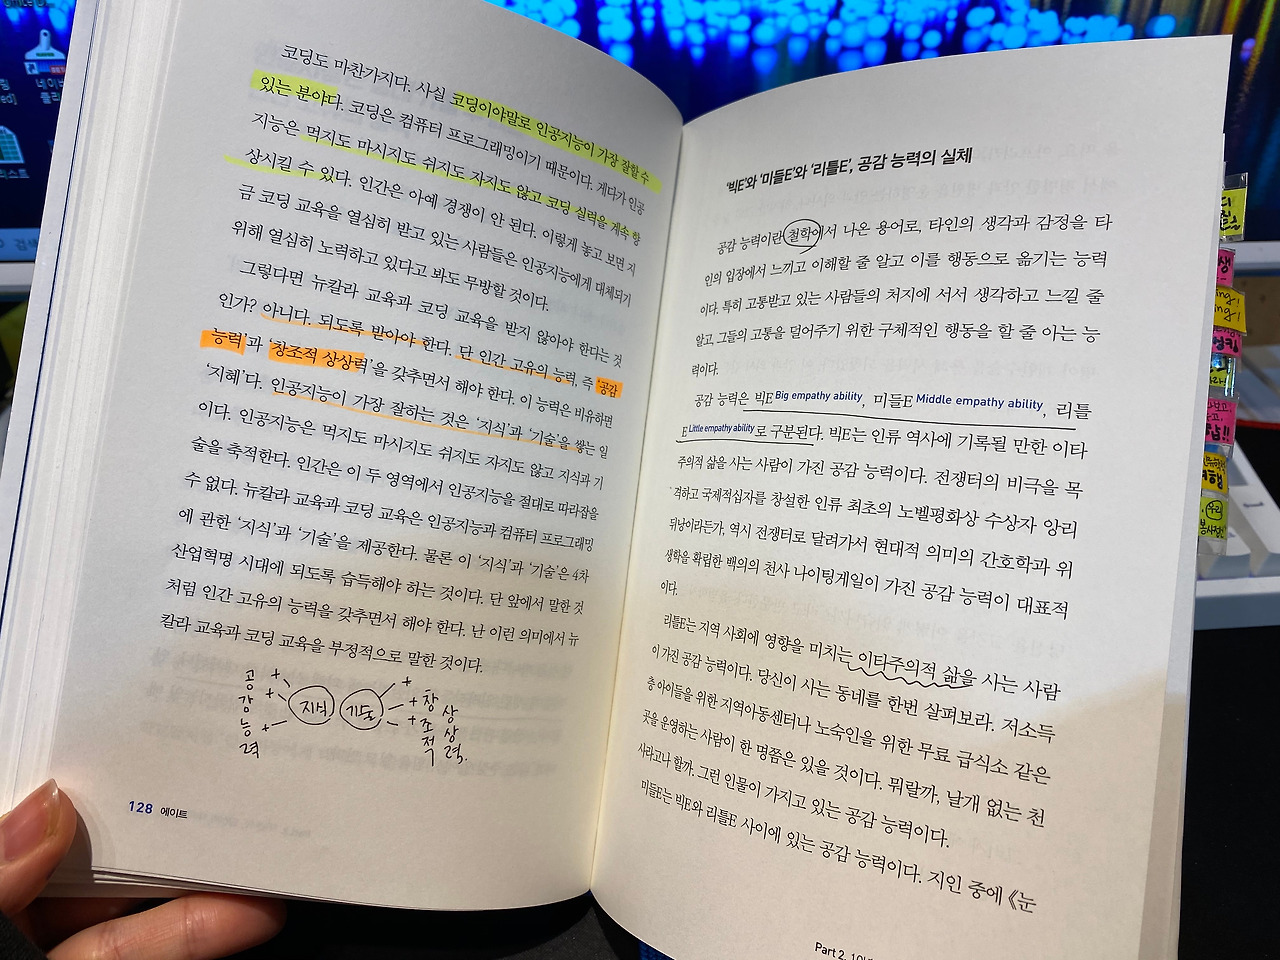 코딩도 마찬가지다. 사실 코딩이야말로 인공지능이 가장 잘할 수
있는 분야다. 코딩은 컴퓨터 프로그래밍이기 때문이다. 게다가 인공
지능은 먹지도 마시지도 쉬지도 자지도 않고 코딩 실력을 계속 향
상시킬 수 있다. 인간은 아예 경쟁이 안 된다. 이렇게 놓고 보면 지
금 코딩 교육을 열심히 받고 있는 사람들은 인공지능에게 대체되기
위해 열심히 노력하고 있다고 봐도 무방할 것이다.
그렇다면 뉴칼라 교육과 코딩 교육을 받지 않아야 한다는 것
인가? 아니다. 되도록 받아야 한다. 단 인간 고유의 능력, 즉 '공감
능력'과 '창조적 상상력'을 갖추면서 해야 한다. 이 능력은 비유하면
'지혜'다. 인공지능이 가장 잘하는 것은 '지식'과 '기술'을 쌓는 일
이다. 인공지능은 먹지도 마시지도 쉬지도 자지도 않고 지식과 기
술을 축적한다. 인간은 이 두 영역에서 인공지능을 절대로 따라잡을
수 없다. 뉴칼라 교육과 코딩 교육은 인공지능과 컴퓨터 프로그래밍
에 관한 '지식'과 '기술'을 제공한다. 물론 이 '지식'과 '기술'은 4차
산업혁명 시대에 되도록 습득해야 하는 것이다. 단 앞에서 말한 것
처럼 인간 고유의 능력을 갖추면서 해야 한다. 난 이런 의미에서 뉴
칼라 교육과 코딩 교육을 부정적으로 말한 것이다.
공감능력 + + + 지식 기술 + + + 창조적 상상력.
128 에이트
'빅E'와 '미들E'와 '리틀E', 공감 능력의 실체
공감 능력이란 철학에서 나온 용어로, 타인의 생각과 감정을 타
인의 입장에서 느끼고 이해할 줄 알고 이를 행동으로 옮기는 능력
이다. 특히 고통받고 있는 사람들의 처지에 서서 생각하고 느낄 줄
알고, 그들의 고통을 덜어주기 위한 구체적인 행동을 할 줄 아는 능
력이다.
공감 능력은 빅E Big empathy ability, 미들E Middle empathy ability, 리틀
E Little empathy ability로 구분된다. 빅E는 인류 역사에 기록될 만한 이타
주의적 삶을 사는 사람이 가진 공감 능력이다. 전쟁터의 비극을 목
격하고 국제적십자를 창설한 인류 최초의 노벨평화상 수상자 앙리
뒤낭이라든가, 역시 전쟁터로 달려가서 현대적 의미의 간호학과 위
생학을 확립한 백의의 천사 나이팅게일이 가진 공감 능력이 대표적
이다.
리틀E는 지역 사회에 영향을 미치는 이타주의적 삶을 사는 사람
이 가진 공감 능력이다. 당신이 사는 동네를 한번 살펴보라. 저소득
층 아이들을 위한 지역아동센터나 노숙인을 위한 무료 급식소 같은
곳을 운영하는 사람이 한 명쯤은 있을 것이다. 뭐랄까, 날개 없는 천
사라고나 할까. 그런 인물이 가지고 있는 공감 능력이다.
미들E는 빅E와 리틀E 사이에 있는 공감 능력이다. 지인 중에 《눈
Part 2.